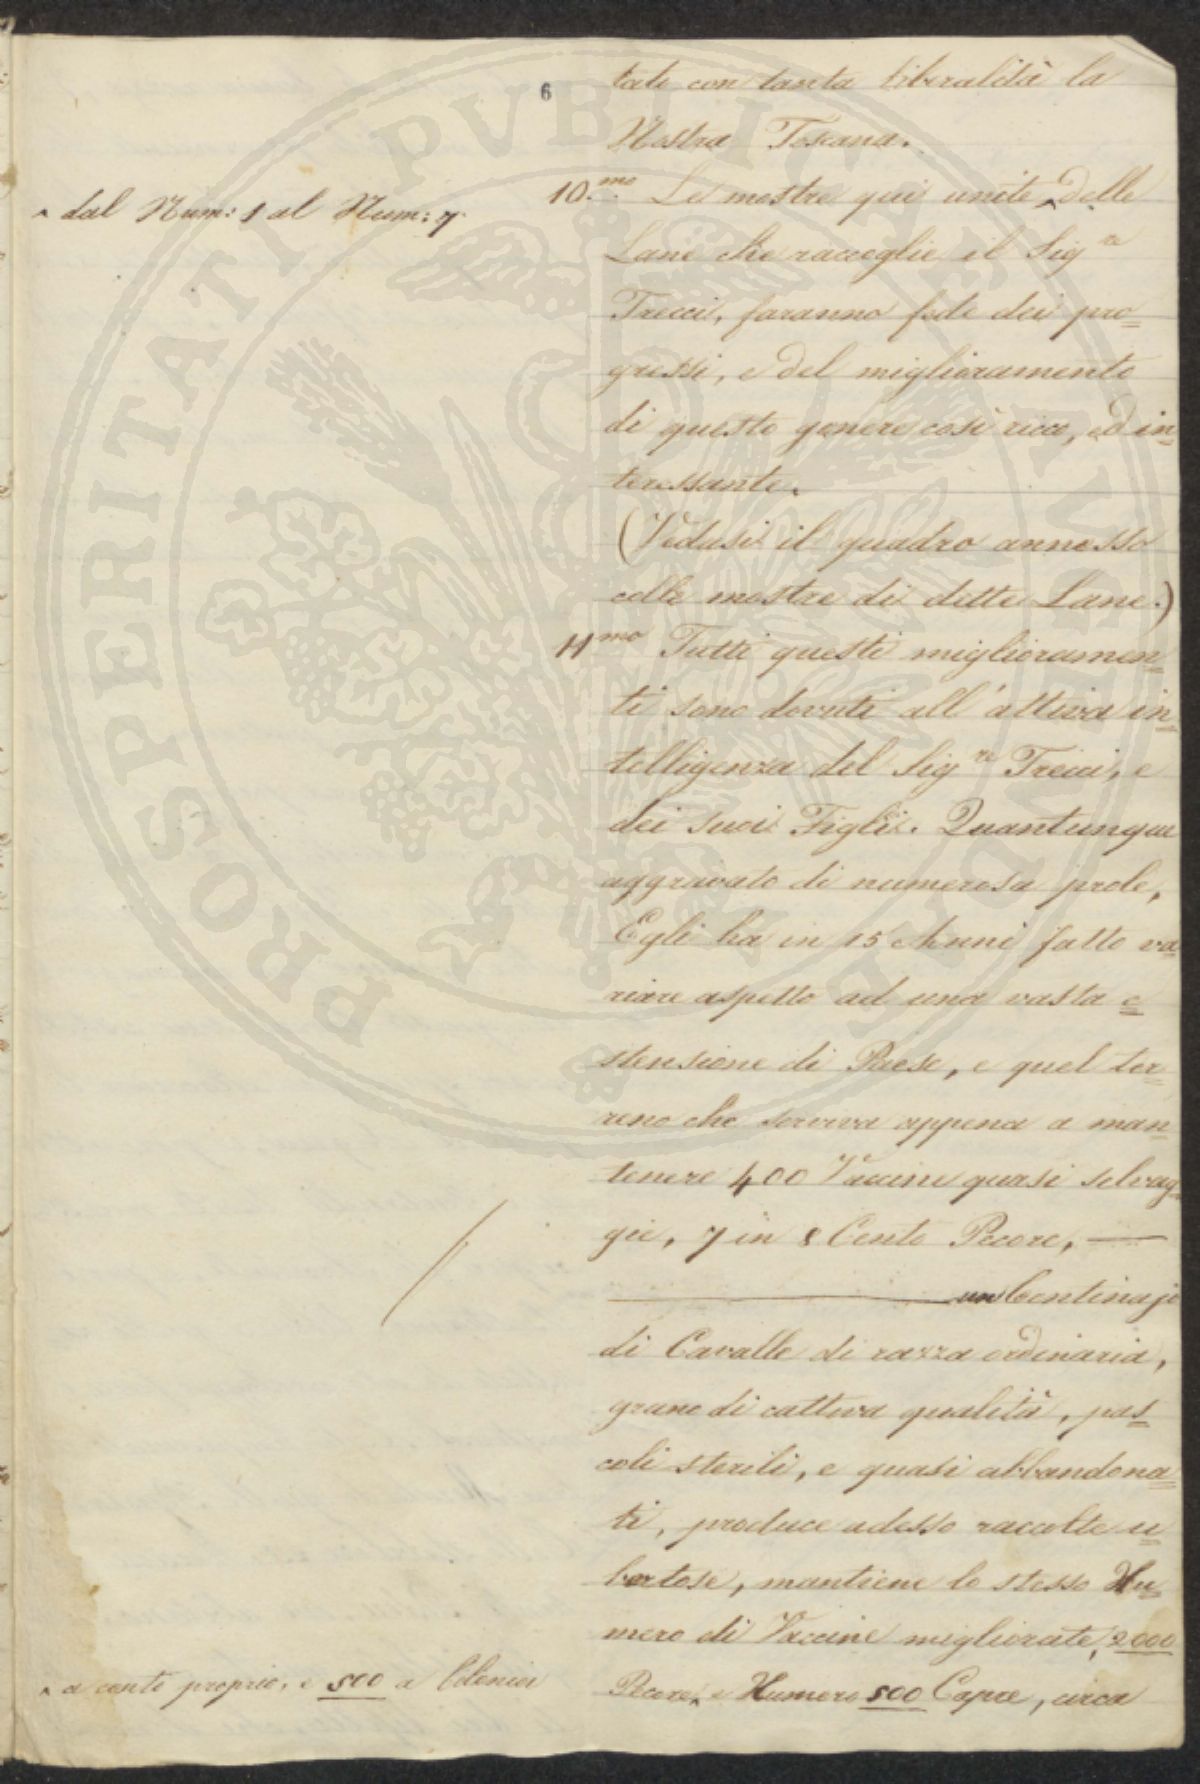 6
tate con tanta liberalità la
Nostra Toscana.
10.mo Le mostre qui unite ‸ delle
‸ dal Num: 1 al Num: 7.
Lane che raccoglie il Sigre
Trecci, faranno fede dei pro=
gressi, e del miglioramento
di questo genere così ricco, ed in=
teressante.
(Vedasi il quadro annesso
colle mostre di dette Lane.)
11mo Tutti questi miglioramen=
ti sono dovuti all'attiva in=
telligenza del Sigre Trecci, e
dei suoi Figli. Quantunque
aggravato di numerosa prole,
Egli ha in 15 Anni fatto va=
riare aspetto ad una vasta e=
stensione di Paese, e quel ter=
reno che serviva appena a man=
tenere 400 Vaccine quasi selvag=
gie, 7 in 8 Cento Pecore, —
— un Centinajo
di Cavalle di razza ordinaria,
grano di cattiva qualità, pas=
coli sterili, e quasi abbandona=
ti, produce adesso raccolte u=
bertose, mantiene lo stesso Nu=
mero di Vaccine migliorate, 2000
Pecore ‸ e Numero 500 Capre, circa
‸ a conto proprio, e 500 a Colonia
PROSPERITATI PVBLICAE AVGENDAE